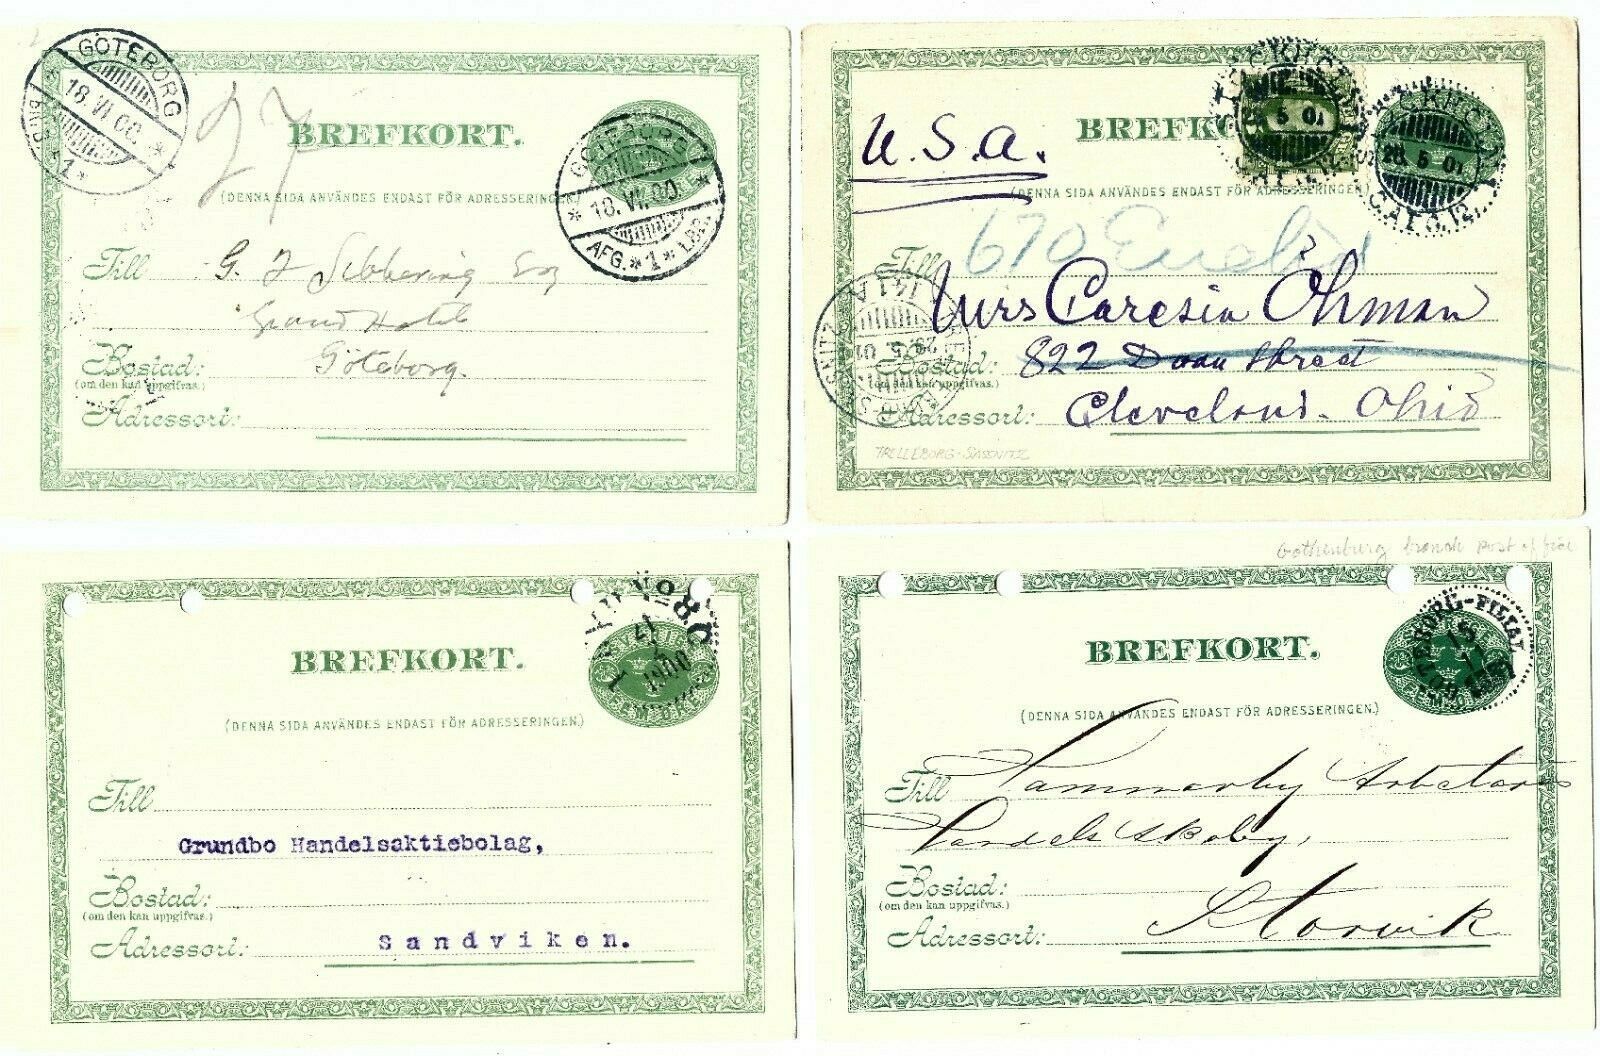 GÖTEBORG
18. VI. 00.
27
BREFKORT.
GÖTEBORG 1
18. VI. 00.
AFG. * 1 * LBR.
(DENNA SIDA ANVÄNDES ENDAST FÖR ADRESSERINGEN.)
Till G. J. Sibbering Esq
Grand Hotel
Bostad: Göteborg.
(om den kan uppgifvas.)
Adressort:
BREFKORT.
26 5 01
U.S.A.
(DENNA SIDA ANVÄNDES ENDAST FÖR ADRESSERINGEN.)
670 Euclid
Till
Mrs Caresia Öhman
141 A
29.5.01
SASSNITZ
Bostad: 822 Doan Street
(om den kan uppgifvas.)
Adressort: Cleveland. Ohio
TRELLEBORG-SASSNITZ
No 80
1900
BREFKORT.
(DENNA SIDA ANVÄNDES ENDAST FÖR ADRESSERINGEN.)
Till
Grundbo Handelsaktiebolag,
Bostad:
(om den kan uppgifvas.)
Adressort: Sandviken.
Gothenburg branch post office
GÖTEBORG-FILIAL
BREFKORT.
(DENNA SIDA ANVÄNDES ENDAST FÖR ADRESSERINGEN.)
Till Hammarby Arbetares
Handels Aktbg,
Bostad:
(om den kan uppgifvas.)
Adressort: Storvik